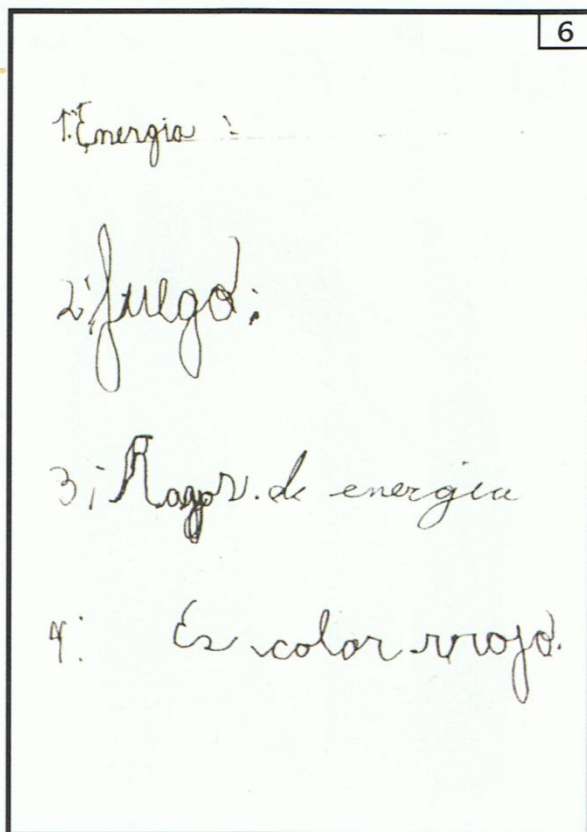 6
1. Energia :
2; fuego:
3; Rayos. de energia
4: Es color rrojo.